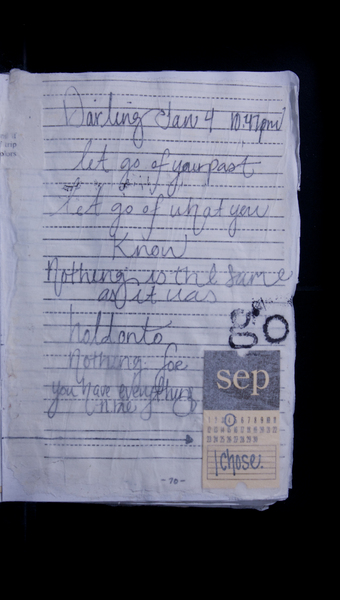 Darling Jan 4 10:47pm
let go of your past
let go of what you
know
Nothing is the same
as it was
hold onto
nothing foe
you have everything
go
sep
I chose.
- 70 -